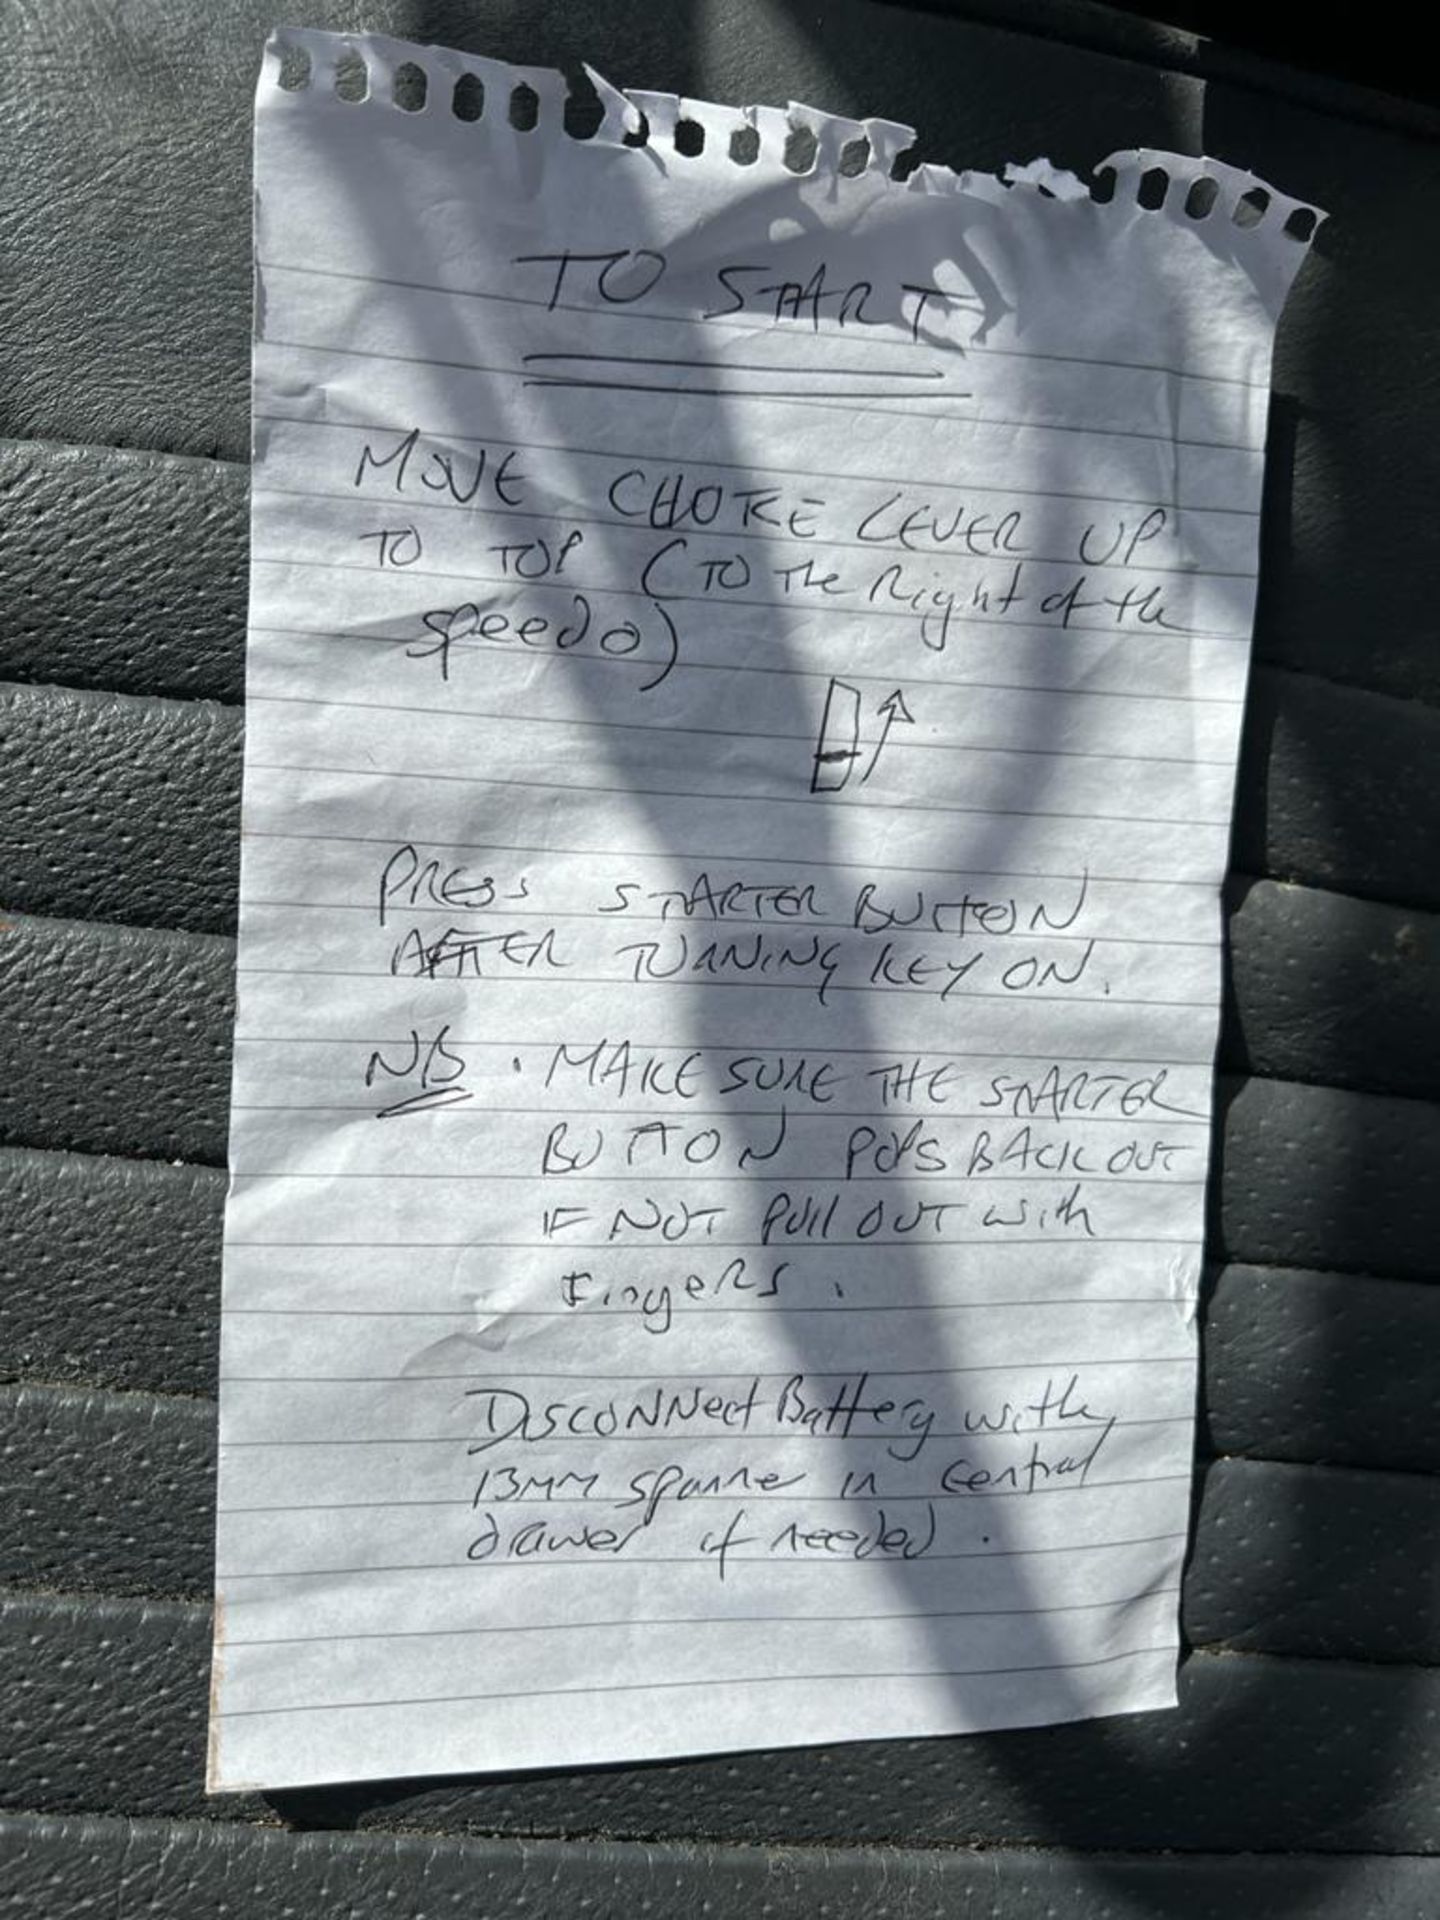 TO START
MOVE CHOKE LEVER UP
TO TOP (TO THE Right of the
speedo)
PRESS STARTER BUTTON
AFTER TURNING KEY ON.
NB. MAKE SURE THE STARTER
BUTTON POPS BACK OUT
IF NOT PUll OUT with
FingeRS.
DISCONNect Battery with
13MM spanner in central
drawer if needed.